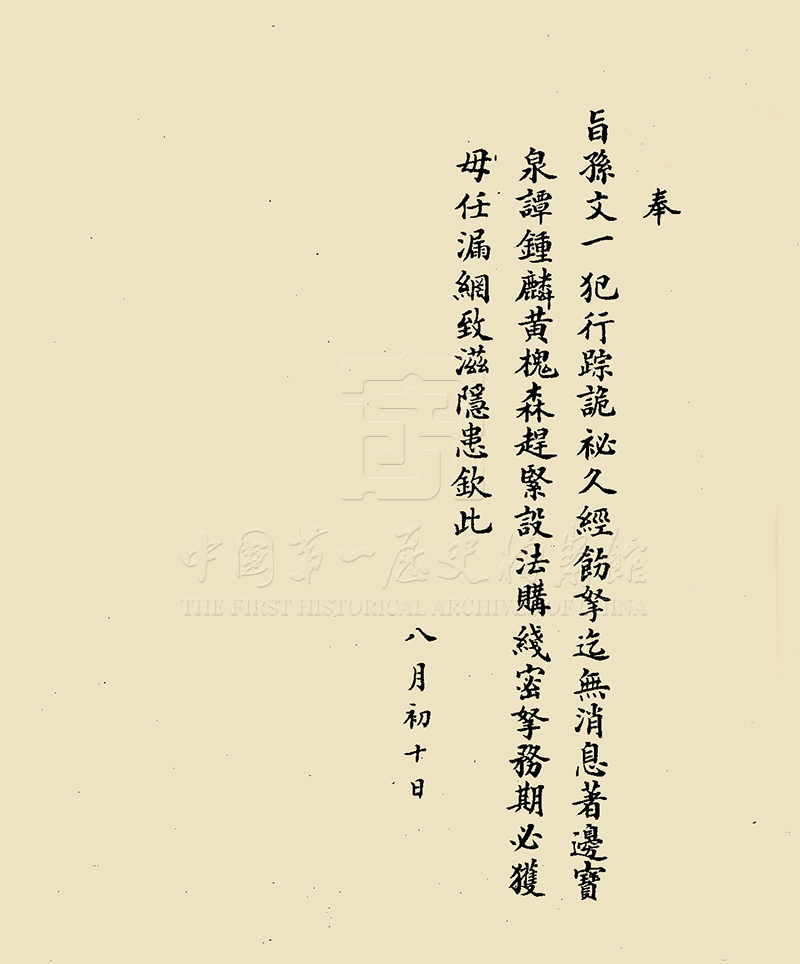 奉
旨孫文一犯行踪詭祕久經飭拏迄無消息著邊寶
泉譚鍾麟黃槐森趕緊設法購綫密拏務期必獲
毋任漏網致滋隱患欽此
八月初十日
中國第一歷史檔案館
THE FIRST HISTORICAL ARCHIVES OF CHINA